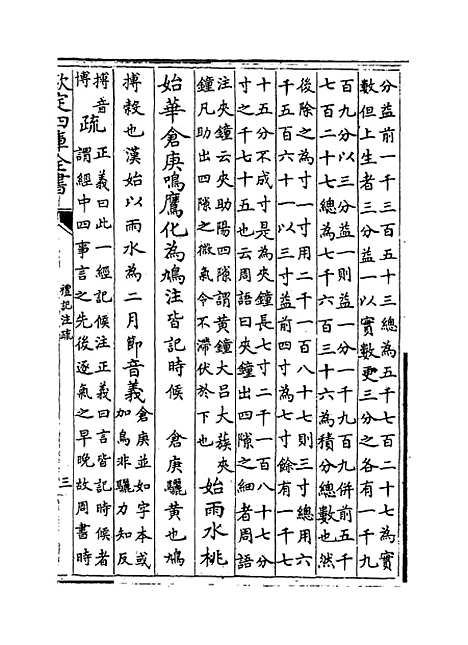 分益前一千三百五十三總為五千七百二十七為實
數但上生者三分益一以實數更三分之各有一千九
百九分以三分益一則益一分一千九百九併前五千
七百二十七總為七千六百三十六為積分總數也然
後除之為寸一寸用二千一百八十七則三寸總用六
千五百六十一以三寸益前四寸為七寸餘有一千七
十五分不成寸是為夾鐘長七寸二千一百八十七分
寸之千七十五也云周語曰夾鐘出四隙之細者周語
注夾鐘云夾助陽四隙謂黃鐘大吕大蔟夾
鐘凡助出四隙之微氣令不滯伏於下也
始雨水桃
始華倉庚鳴鷹化為鳩注皆記時候
倉庚驪黃也鳩
搏穀也漢始以雨水為二月節音義
倉庚並如字本或
加鳥非驪力知反
搏音
博
疏
正義曰此一經記候注正義曰言皆記時候者
謂經中四事言之先後逐氣之早晚故周書時
欽定四庫全書
禮記注疏
三